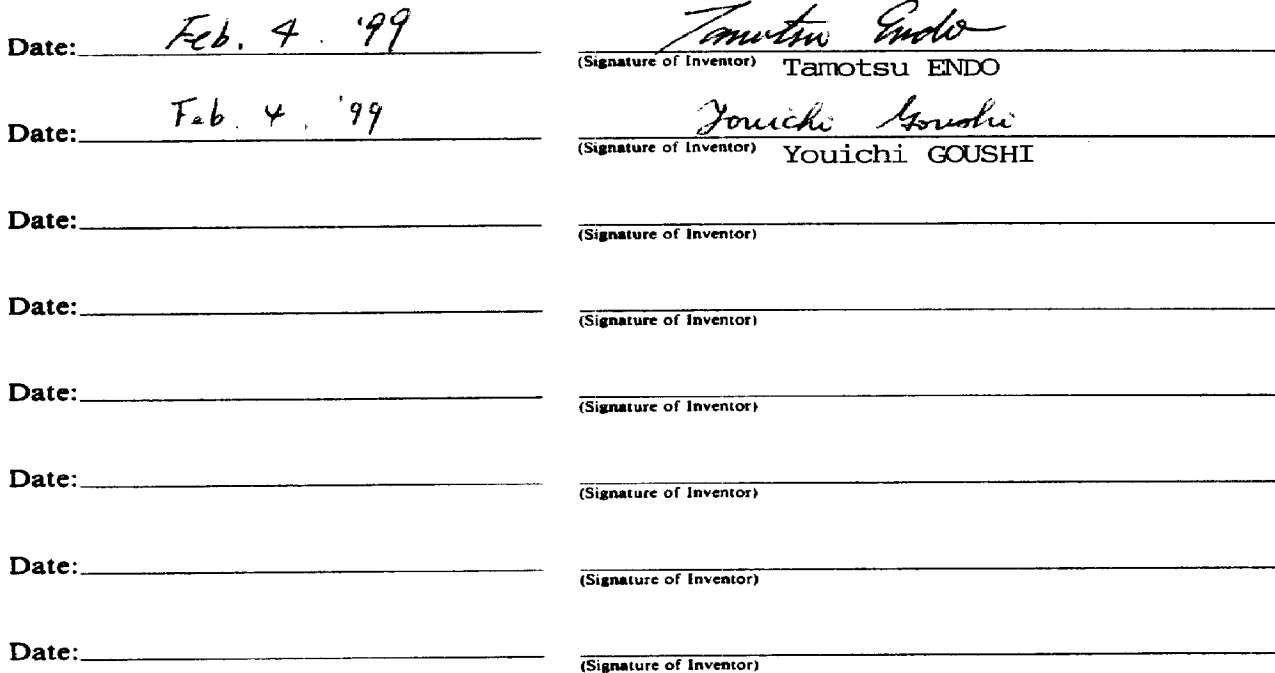 Date: Feb. 4. '99 Tamotsu Endo
(Signature of Inventor) Tamotsu ENDO
Date: Feb. 4. '99 Youichi Goushi
(Signature of Inventor) Youichi GOUSHI
Date:
(Signature of Inventor)
Date:
(Signature of Inventor)
Date:
(Signature of Inventor)
Date:
(Signature of Inventor)
Date:
(Signature of Inventor)
Date:
(Signature of Inventor)